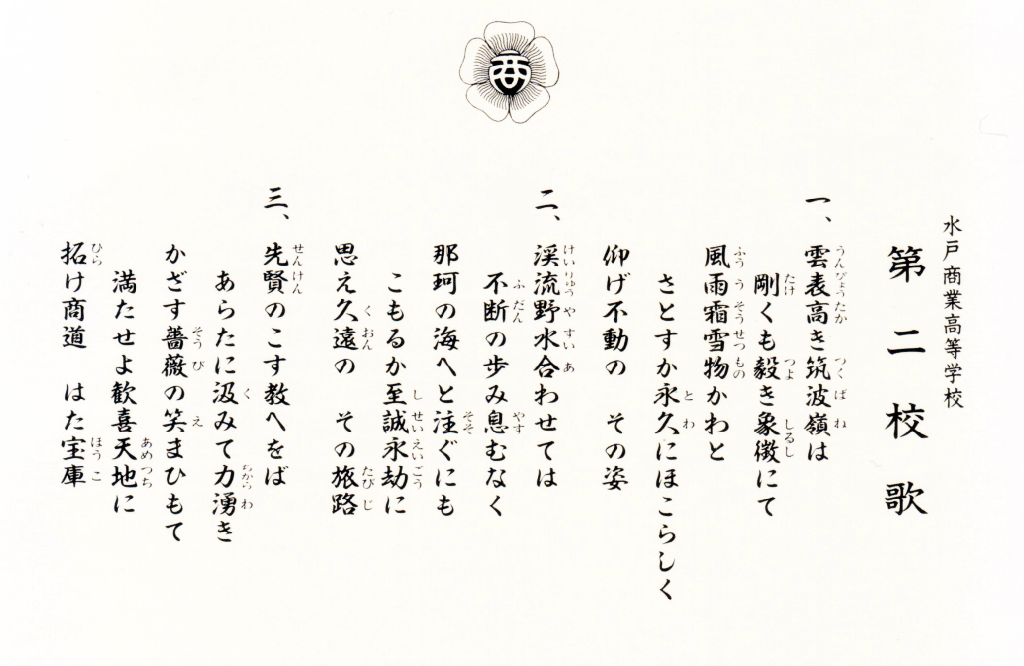 水戸商業高等学校
第二校歌
一、雲表高き筑波嶺は
剛くも毅き象徴にて
風雨霜雪物かわと
さとすか永久にほこらしく
仰げ不動の その姿
二、渓流野水合わせては
不断の歩み息むなく
那珂の海へと注ぐにも
こもるか至誠永劫に
思え久遠の その旅路
三、先賢のこす教へをば
あらたに汲みて力湧き
かざす薔薇の笑まひもて
満たせよ歓喜天地に
拓け商道 はた宝庫